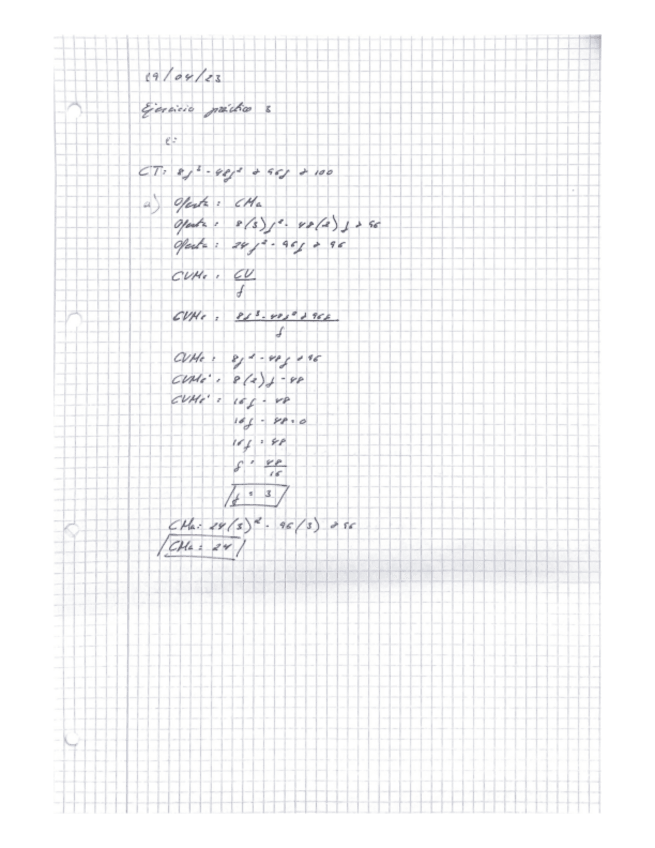 19/04/23
Ejercicio práctico 3
e:
CT: 8q³ - 48q² + 96q + 100
a) Oferta: CMa
Oferta: 8(3)q² - 48(2)q + 96
Oferta: 24q² - 96q + 96
CVMe: CV/q
CVMe: 8q³ - 48q² + 96q/q
CVMe: 8q² - 48q + 96
CVMe': 8(2)q - 48
CVMe': 16q - 48
16q - 48 = 0
16q = 48
q = 48/16
q = 3
CMa: 24(3)² - 96(3) + 96
CMa: 24